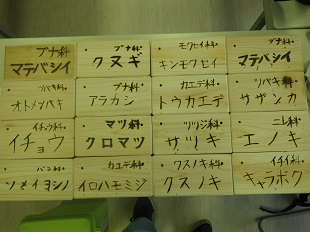 ブナ科
マテバシイ
ブナ科
クヌギ
モクセイ科
キンモクセイ
ブナ科
マテバシイ
ツバキ科
オトメツバキ
ブナ科
アラカシ
カエデ科
トウカエデ
ツバキ科
サザンカ
イチョウ科
イチョウ
マツ科
クロマツ
ツツジ科
サツキ
ニレ科
エノキ
バラ科
ソメイヨシノ
カエデ科
イロハモミジ
クスノキ科
クスノキ
イチイ科
キャラボク